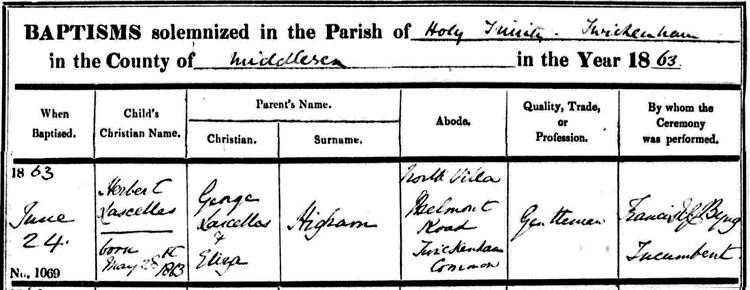 BAPTISMS solemnized in the Parish of Holy Trinity - Twickenham
in the County of Middlesex in the Year 1863.
When Baptised.
Child's Christian Name.
Parent's Name.
Christian.
Surname.
Abode.
Quality, Trade, or Profession.
By whom the Ceremony was performed.
1863
June
24.
No. 1069
Herbert
Lascelles
born
May 28th
1863
George
Lascelles
&
Eliza
Higham
North Villa
Belmont
Road
Twickenham
Common
Gentleman
Francis Byng
Incumbent